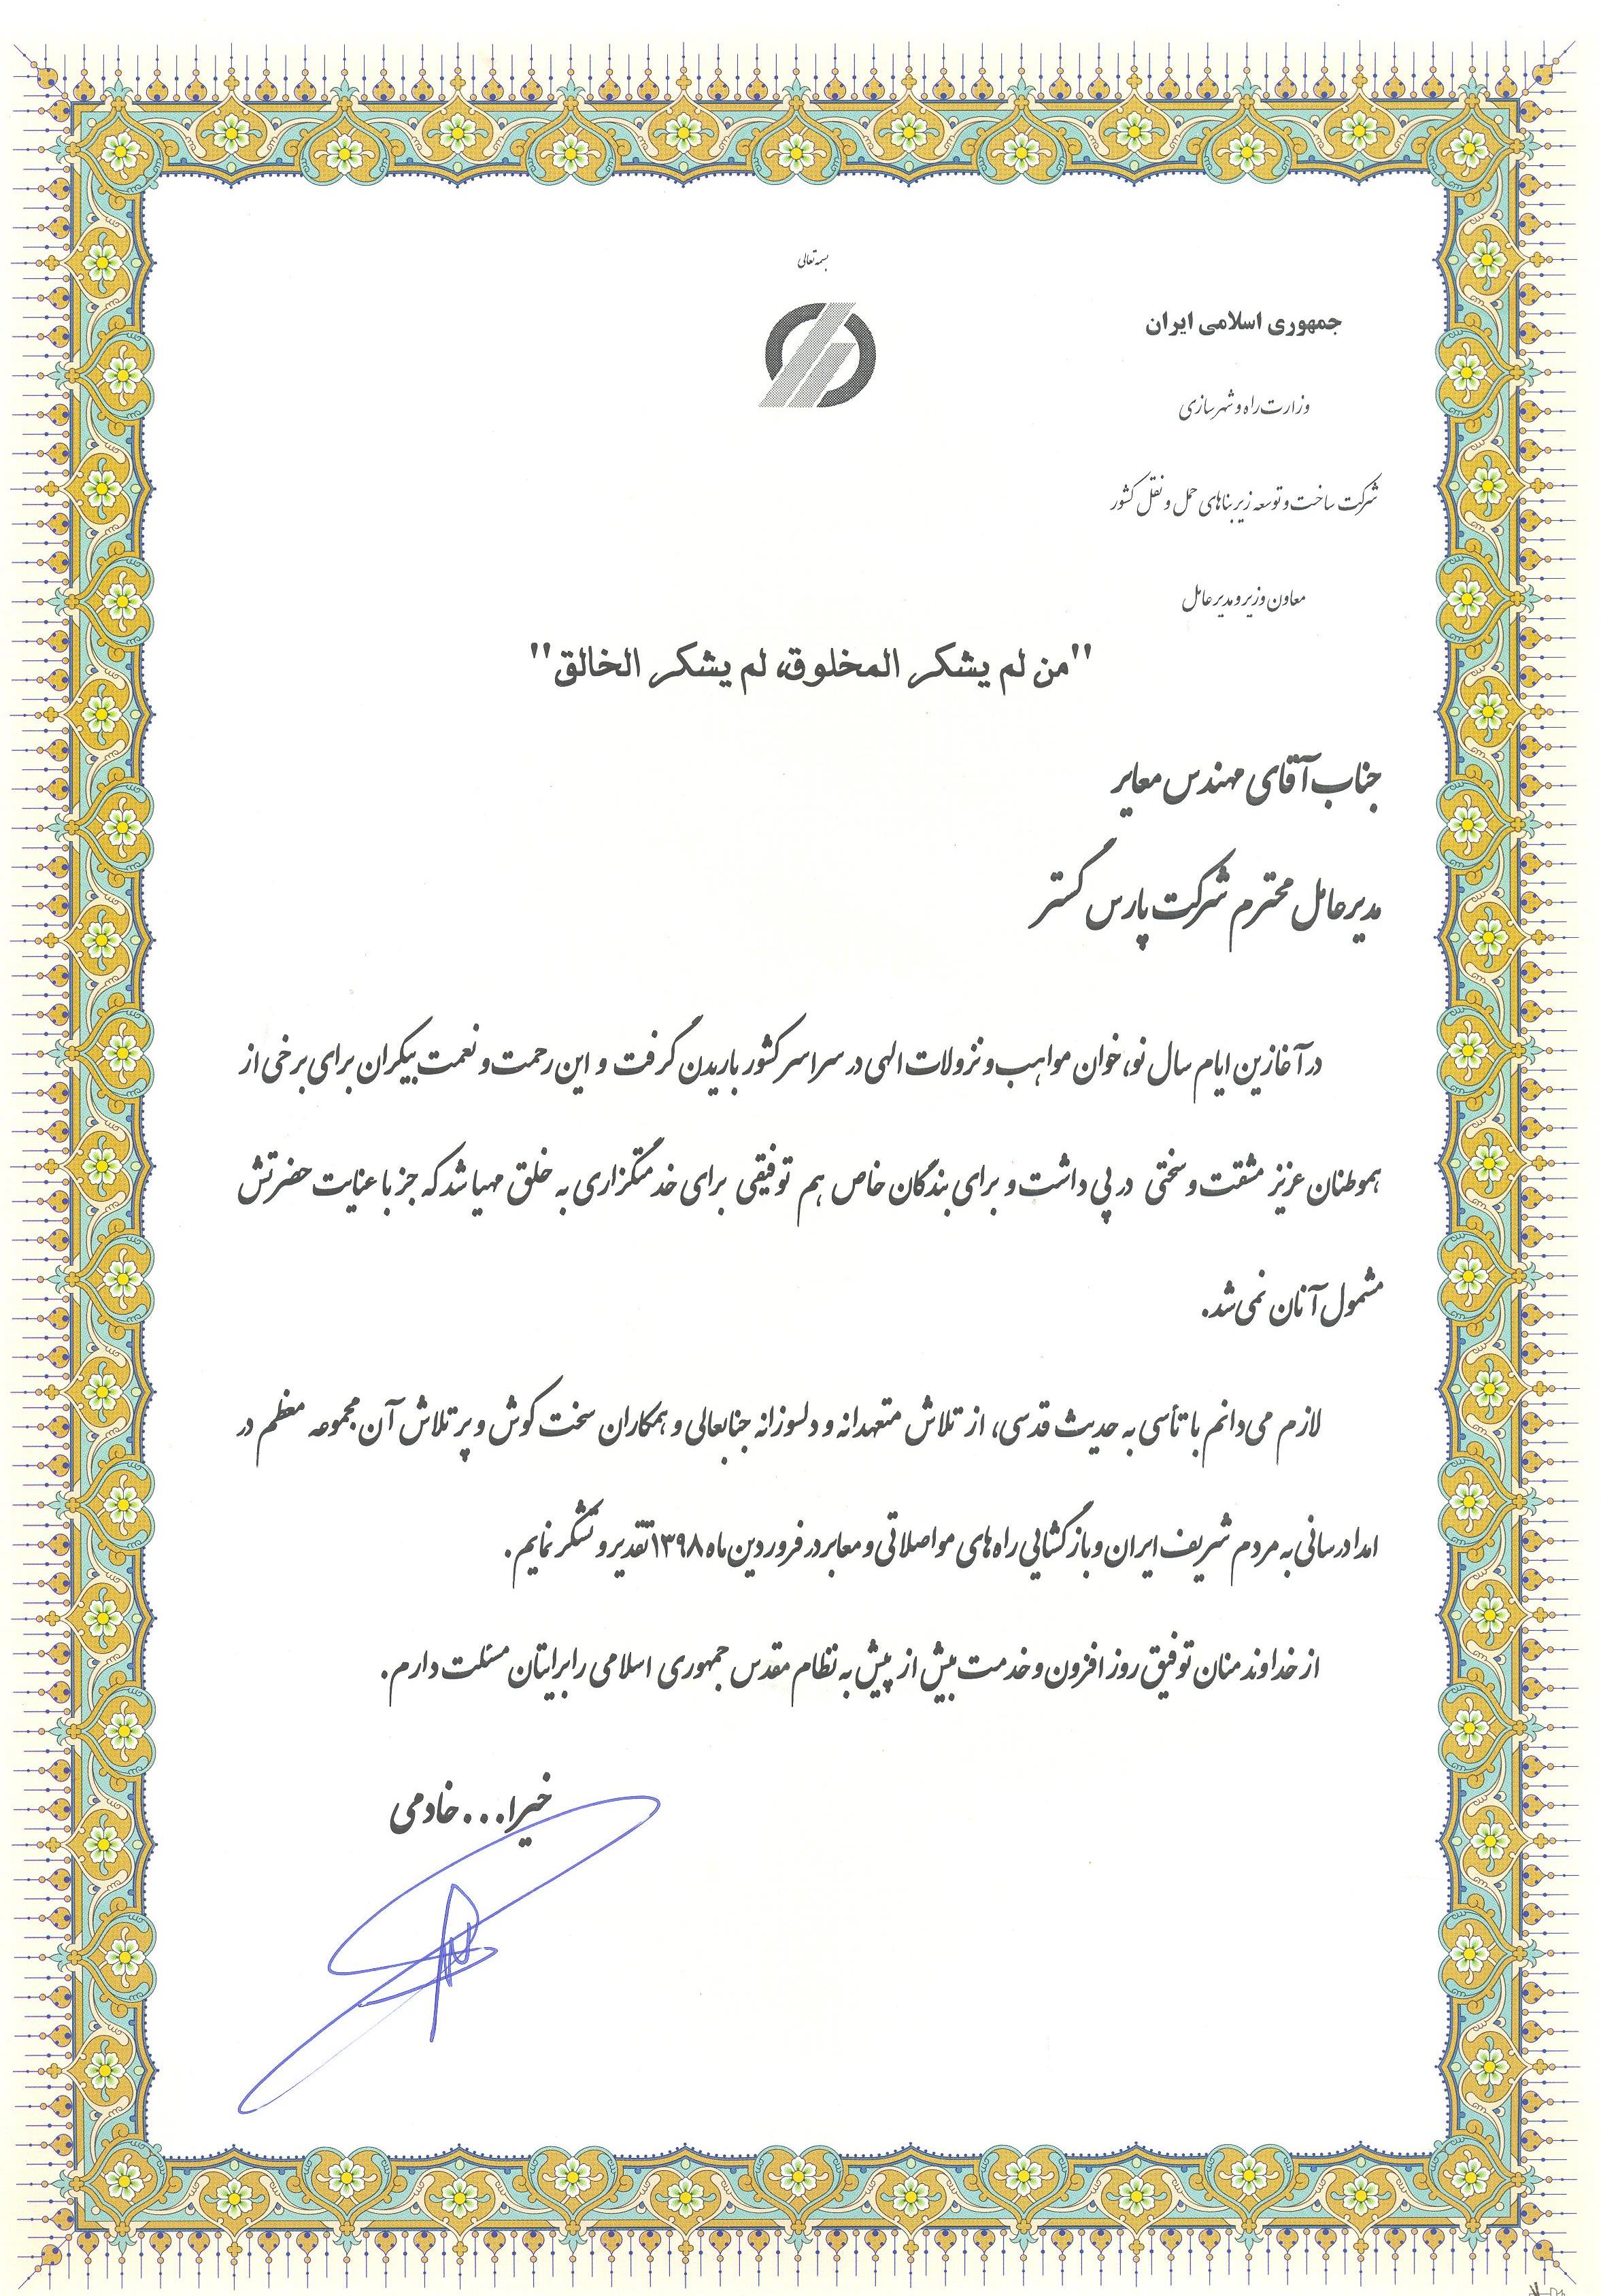 بسمه تعالی
جمهوری اسلامی ایران
وزارت راه و شهرسازی
شرکت ساخت و توسعه زیربناهای حمل و نقل کشور
معاون وزیر و مدیرعامل
"من لم یشکر المخلوق، لم یشکر الخالق"
جناب آقای مهندس معایر
مدیرعامل محترم شرکت پارس گستر
در آغازین ایام سال نو، خوان مواهب و نزولات الهی در سراسر کشور باریدن گرفت و این رحمت و نعمت بیکران برای برخی از
هموطنان عزیز مشقت و سختی در پی داشت و برای بندگان خاص هم توفیقی برای خدمتگزاری به خلق مهیا شد که جز با عنایت حضرتش
مشمول آنان نمی شد.
لازم می دانم با تأسی به حدیث قدسی، از تلاش متعهدانه و دلسوزانه جنابعالی و همکاران سخت کوش و پر تلاش آن مجموعه معظم در
امدادرسانی به مردم شریف ایران و بازگشایی راه های مواصلاتی و معابر در فروردین ماه ۱۳۹۸ تقدیر و تشکر نمایم.
از خداوند منان توفیق روز افزون و خدمت بیش از پیش به نظام مقدس جمهوری اسلامی را برایتان مسئلت دارم.
خیرا... خادمی